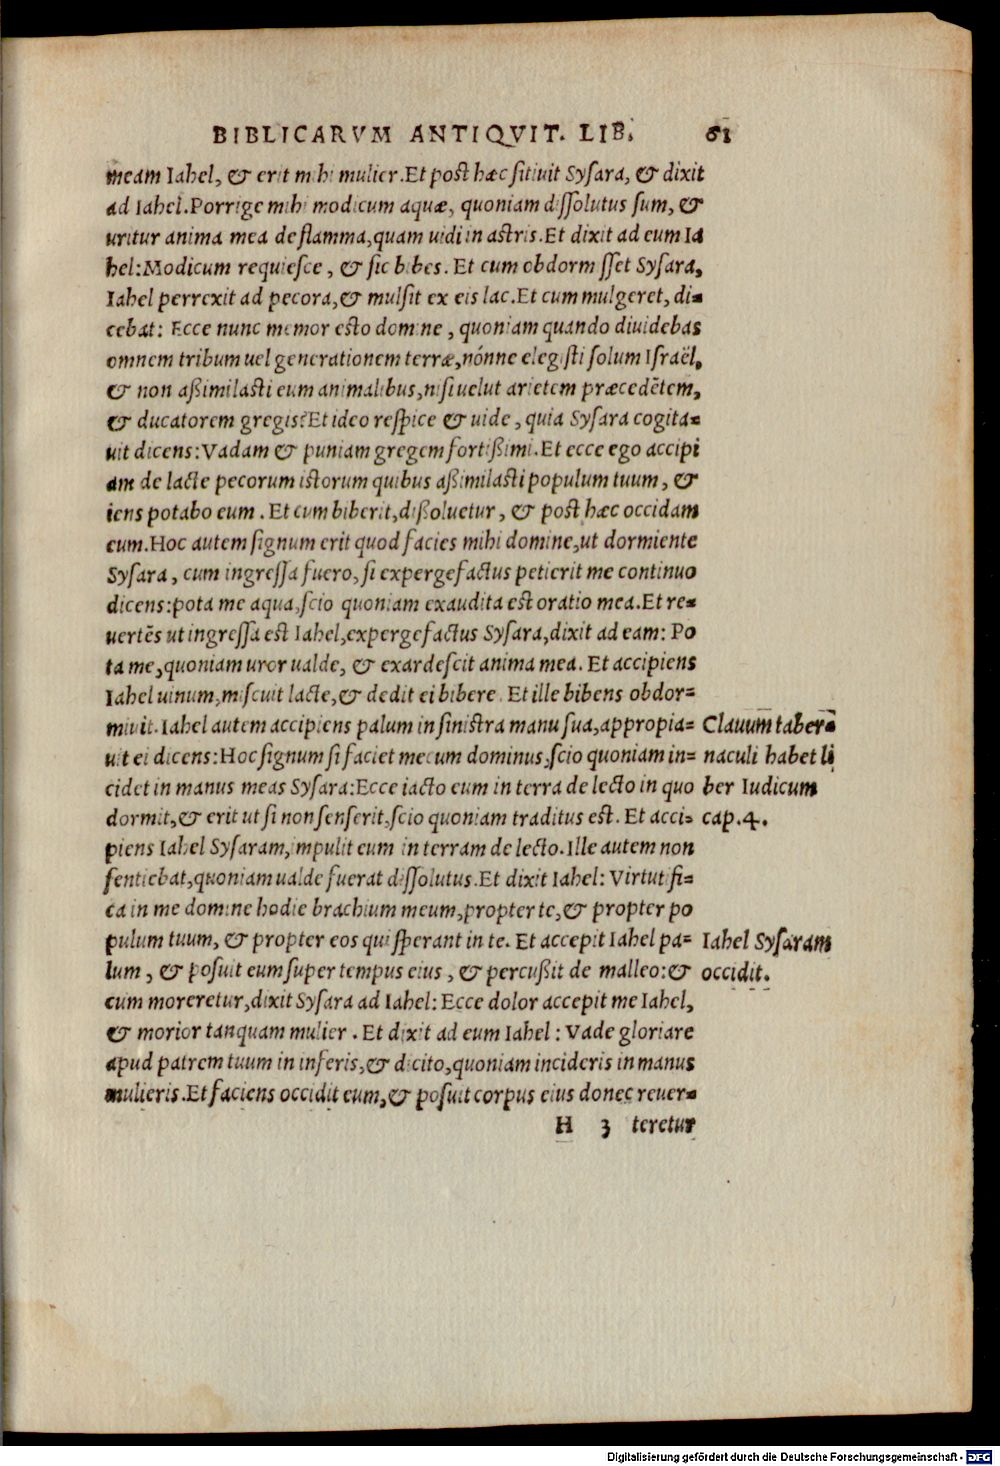 BIBLICARVM ANTIQVIT. LIB. 61
meam Iahel, & erit mihi mulier.Et post hæc sitiuit Sysara, & dixit
ad Iahel.Porrige mihi modicum aquæ, quoniam dissolutus sum, &
uritur anima mea de flamma,quam uidi in astris.Et dixit ad eum Ia
hel:Modicum requiesce, & sic bibes. Et cum obdormisset Sysara,
Iahel perrexit ad pecora,& mulsit ex eis lac.Et cum mulgeret, di-
cebat: Ecce nunc memor esto domine, quoniam quando diuidebas
omnem tribum uel generationem terræ,nónne elegisti solum Israël,
& non aßimilasti eum animalibus,nisi uelut arietem præcedētem,
& ducatorem gregis?Et ideo respice & uide, quia Sysara cogita-
uit dicens:Vadam & puniam gregem fortißimi.Et ecce ego accipi
am de lacte pecorum istorum quibus aßimilasti populum tuum, &
iens potabo eum. Et cum biberit,dißoluetur, & post hæc occidam
eum.Hoc autem signum erit quod facies mihi domine,ut dormiente
Sysara, cum ingressa fuero, si expergefactus petierit me continuo
dicens:pota me aqua,scio quoniam exaudita est oratio mea.Et re-
uertēs ut ingressa est Iahel,expergefactus Sysara,dixit ad eam: Po
ta me,quoniam uror ualde, & exardescit anima mea. Et accipiens
Iahel uinum,miscuit lacte,& dedit ei bibere. Et ille bibens obdor-
miuit. Iahel autem accipiens palum in sinistra manu sua,appropia-
uit ei dicens:Hoc signum si faciet mecum dominus,scio quoniam in-
cidet in manus meas Sysara:Ecce iacto eum in terra de lecto in quo
dormit,& erit ut si non senserit,scio quoniam traditus est. Et acci-
piens Iahel Sysaram,impulit eum in terram de lecto.Ille autem non
sentiebat,quoniam ualde fuerat dissolutus.Et dixit Iahel: Virtutifi-
ca in me domine hodie brachium meum,propter te,& propter po
pulum tuum, & propter eos qui sperant in te. Et accepit Iahel pa-
lum, & posuit eum super tempus eius, & percußit de malleo:&
cum moreretur,dixit Sysara ad Iahel: Ecce dolor accepit me Iahel,
& morior tanquam mulier. Et dixit ad eum Iahel: Vade gloriare
apud patrem tuum in inferis,& dicito,quoniam incideris in manus
mulieris.Et faciens occidit eum,& posuit corpus eius donec reuer-
H 3 teretur
Clauum taber-
naculi habet li
ber Iudicum
cap.4.
Iahel Sysaram
occidit.
Digitalisierung gefördert durch die Deutsche Forschungsgemeinschaft - DFG